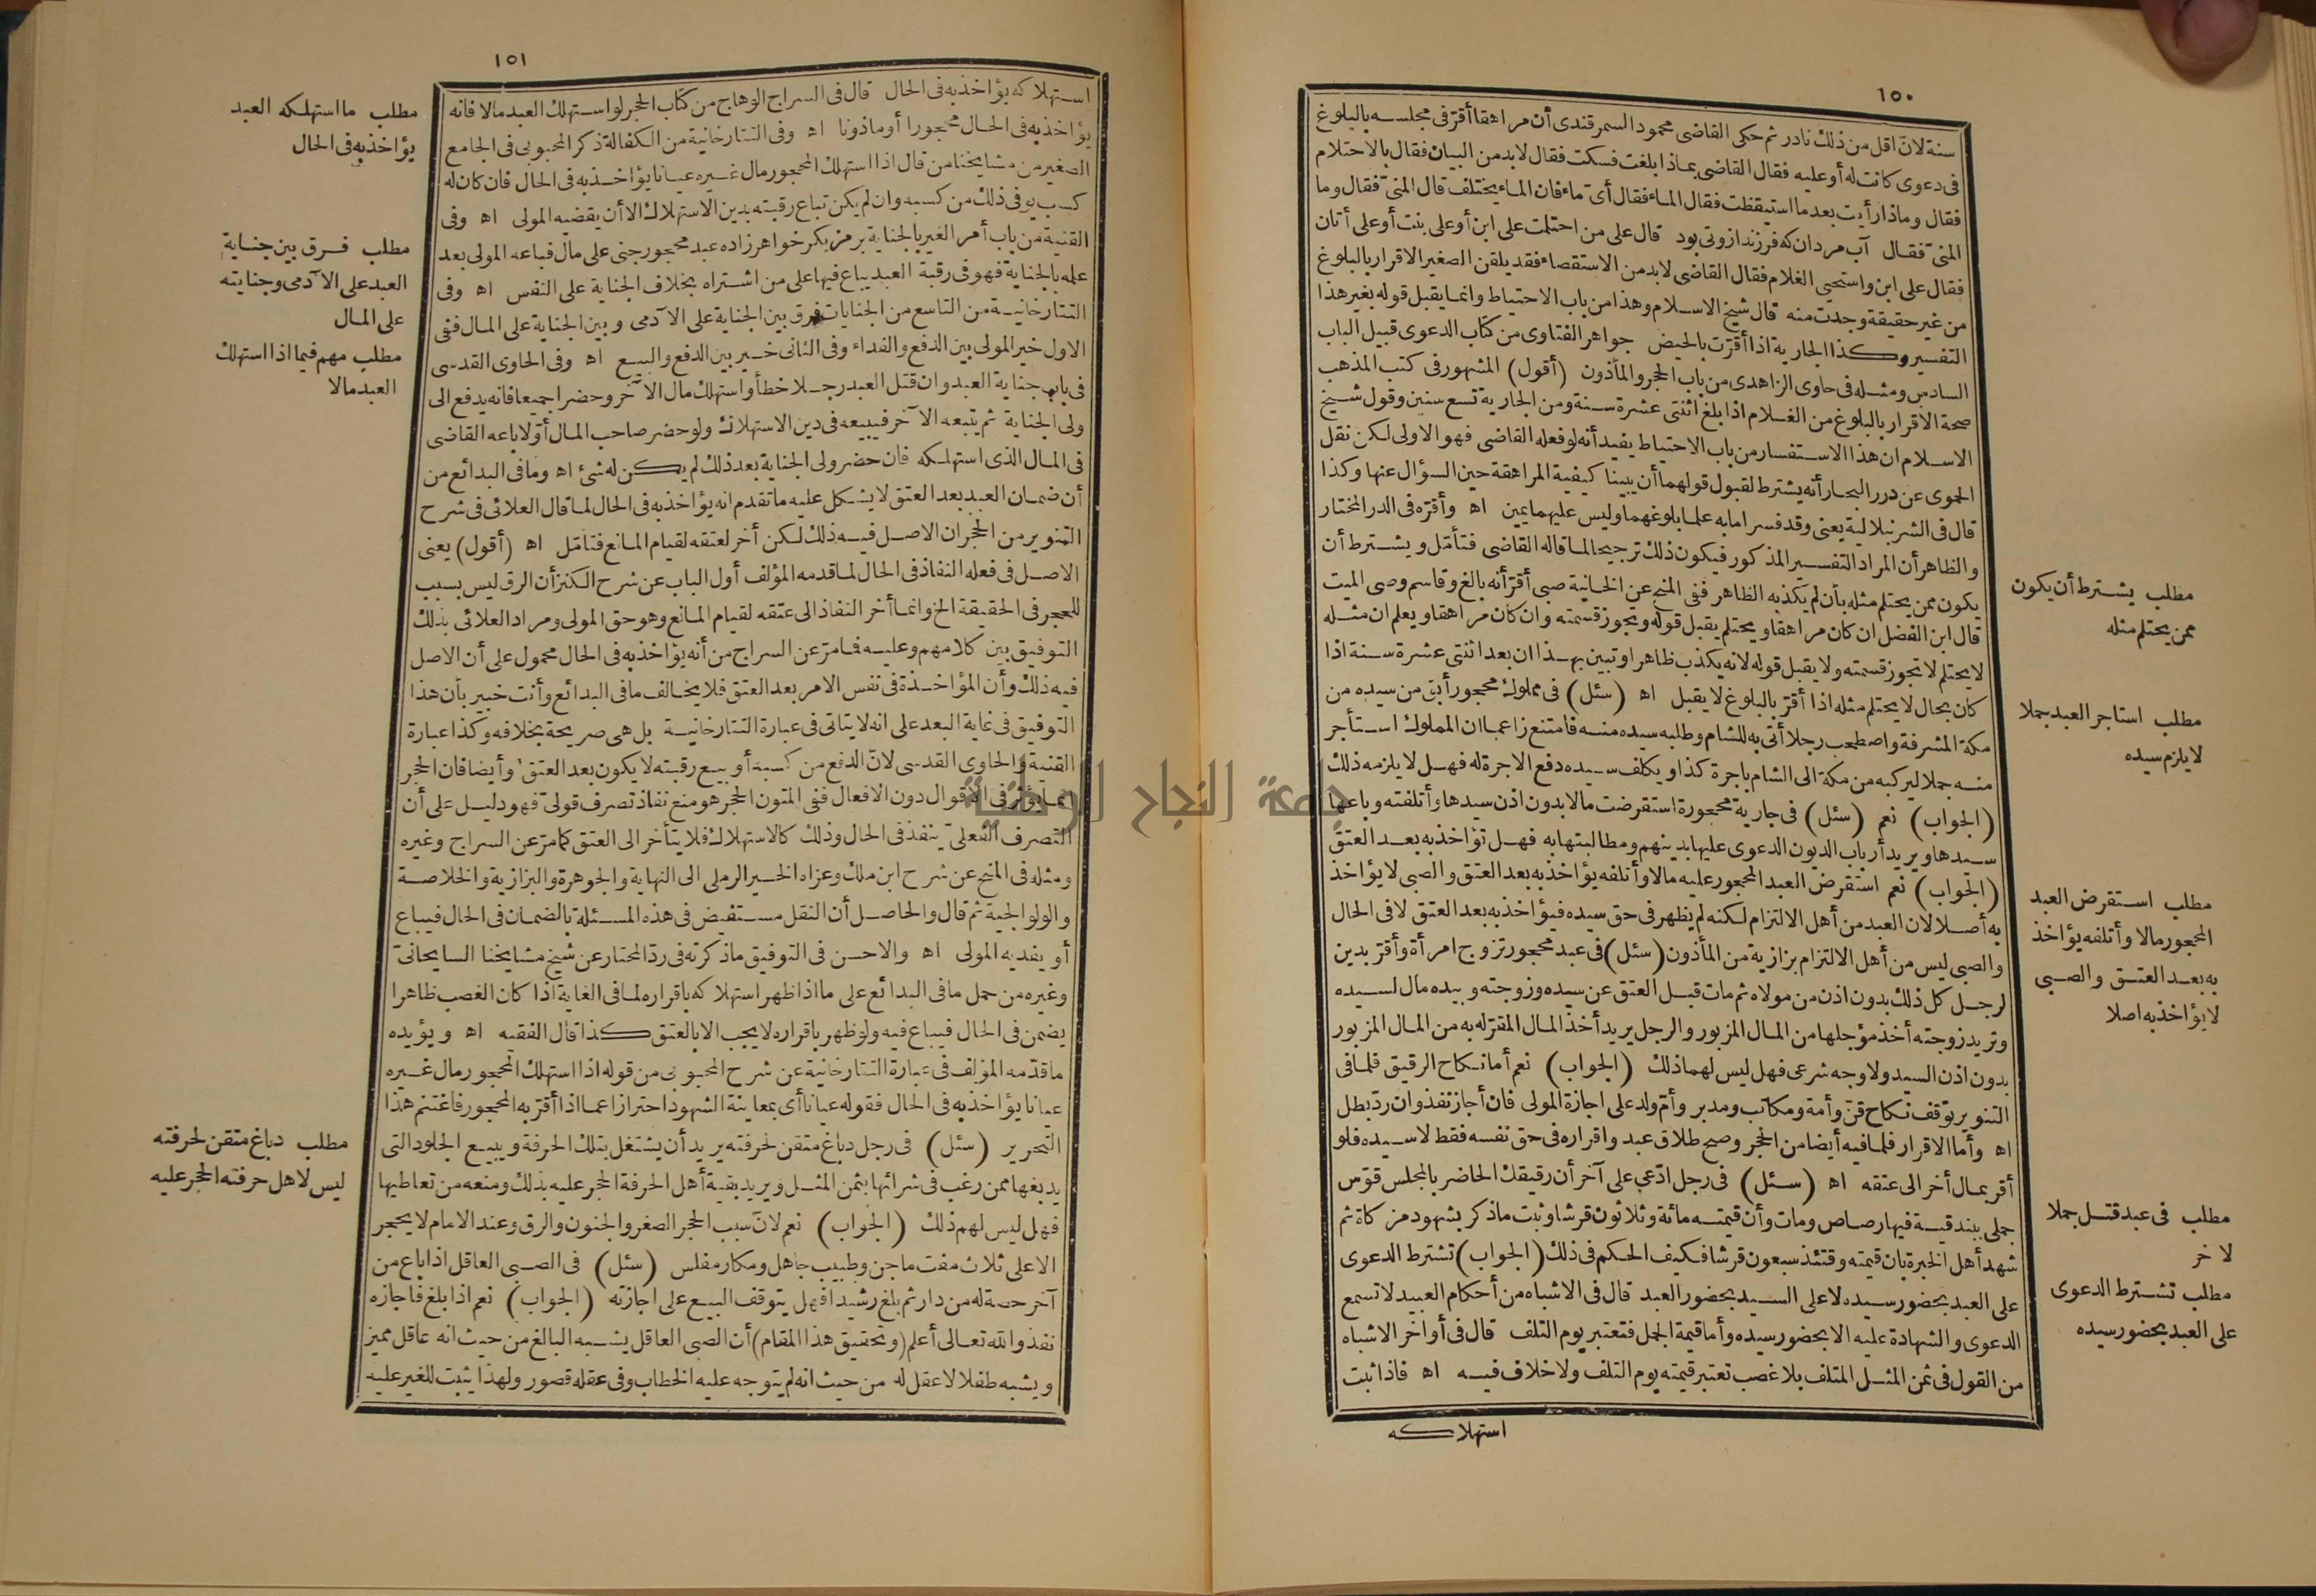 ١٥٠
سنة لان اقل من ذلك نادر ثم حكى القاضى محمود السمرقندى أن مراهقا أقر فى مجلسه بالبلوغ
فى دعوى كانت له أو عليه فقال القاضى بماذا بلغت فسكت فقال لا بد من البيان فقال بالاحتلام
فقال وماذا رأيت بعد ما استيقظت فقال الماء فقال أى ماء فان الماء يختلف قال المنى فقال وما
المنى فقال آب مردان كه فرزند ازوى بود قال على من احتلمت على ابن أو على بنت أو على أتان
فقال على ابن واستحيى الغلام فقال القاضى لا بد من الاستقصاء فقد يلقن الصغير الاقرار بالبلوغ
من غير حقيقة وجدت منه قال شيخ الاسلام وهذا من باب الاحتياط وانما يقبل قوله بغير هذا
التفسير وكذا الجارية اذا أقرت بالحيض جواهر الفتاوى من كتاب الدعوى قبيل الباب
السادس ومثله فى حاوى الزاهدى من باب الحجر والمأذون (أقول) المشهور فى كتب المذهب
صحة الاقرار بالبلوغ من الغلام اذا بلغ اثنتى عشرة سنة ومن الجارية تسع سنين وقول شيخ
الاسلام ان هذا الاستفسار من باب الاحتياط يفيد أنه لو فعله القاضى فهو الاولى لكن نقل
الحموى عن درر البحار أنه يشترط لقبول قولهما أن يبينا كيفية المراهقة حين السؤال عنها وكذا
قال فى الشرنبلالية يعنى وقد فسرا ما به علما بلوغهما وليس عليهما يمين اه وأقره فى الدر المختار
والظاهر أن المراد التفسير المذكور فيكون ذلك ترجيحا لما قاله القاضى فتأمل ويشترط أن
يكون ممن يحتلم مثله بأن لم يكذبه الظاهر ففى المنح عن الخانية صبى أقر أنه بالغ وقاسم وصى الميت
قال ابن الفضل ان كان مراهقا ويحتلم يقبل قوله وتجوز قسمته وان كان مراهقا ويعلم ان مثله
لا يحتلم لا تجوز قسمته ولا يقبل قوله لانه يكذب ظاهرا وتبين بهذا ان بعد اثنتى عشرة سنة اذا
كان بحال لا يحتلم مثله اذا أقر بالبلوغ لا يقبل اه (سئل) فى مملوك محجور أبق من سيده من
مكة المشرفة واصطحب رجلا أتى به للشام وطلبه سيده منه فامتنع زاعما ان المملوك استأجر
منه جملا ليركبه من مكة الى الشام باجرة كذا ويكلف سيده دفع الاجرة له فهل لا يلزمه ذلك
(الجواب) نعم (سئل) فى جارية محجورة استقرضت مالا بدون اذن سيدها وأتلفته وباعها
سيدها ويريد أرباب الديون الدعوى عليها بدينهم ومطالبتها به فهل تؤاخذ به بعد العتق
(الجواب) نعم استقرض العبد المحجور عليه مالا وأتلفه يؤاخذ به بعد العتق والصبى لا يؤاخذ
به أصلا لان العبد من أهل الالتزام لكنه لم يظهر فى حق سيده فيؤاخذ به بعد العتق لا فى الحال
والصبى ليس من أهل الالتزام بزازية من المأذون (سئل) فى عبد محجور تزوج امرأة وأقر بدين
لرجل كل ذلك بدون اذن من مولاه ثم مات قبل العتق عن سيده وزوجته وبيده مال لسيده
وتريد زوجته أخذ مؤجلها من المال المزبور والرجل يريد أخذ المال المقر له به من المال المزبور
بدون اذن السيد ولا وجه شرعى فهل ليس لهما ذلك (الجواب) نعم أما نكاح الرقيق فلما فى
التنوير توقف نكاح قن وأمة ومكاتب ومدبر وأم ولد على اجازة المولى فان أجاز نفذ وان رد بطل
اه وأما الاقرار فلما فيه أيضا من الحجر وصح طلاق عبد واقراره فى حق نفسه فقط لا سيده فلو
أقر بمال أخر الى عتقه اه (سئل) فى رجل ادعى على آخر أن رقيقك الحاضر بالمجلس قوس
جملى ببندقية فيها رصاص ومات وأن قيمته مائة وثلاثون قرشا وثبت ما ذكر بشهود مزكاة ثم
شهد أهل الخبرة بان قيمته وقتئذ سبعون قرشا فكيف الحكم فى ذلك (الجواب) تشترط الدعوى
على العبد بحضور سيده لا على السيد بحضور العبد قال فى الاشباه من أحكام العبيد لا تسمع
الدعوى والشهادة عليه الا بحضور سيده وأما قيمة الجمل فتعتبر يوم التلف قال فى أواخر الاشباه
من القول فى ثمن المثل المتلف بلا غصب تعتبر قيمته يوم التلف ولا خلاف فيه اه فاذا ثبت
استهلاكه
مطلب يشترط أن يكون
ممن يحتلم مثله
مطلب استاجر العبد جملا
لا يلزم سيده
مطلب استقرض العبد
المحجور مالا وأتلفه يؤاخذ
به بعد العتق والصبى
لا يؤاخذ به اصلا
مطلب فى عبد قتل جملا
لا خر
مطلب تشترط الدعوى
على العبد بحضور سيده
١٥١
استهلاكه يؤاخذ به فى الحال قال فى السراج الوهاج من كتاب الحجر لو استهلك العبد مالا فانه
يؤاخذ به فى الحال محجورا أو ماذونا اه وفى التتارخانية من الكفالة ذكر المحبوبى فى الجامع
الصغير من مشايخنا من قال اذا استهلك المحجور مال غيره عيانا يؤاخذ به فى الحال فان كان له
كسب يوفى ذلك من كسبه وان لم يكن تباع رقبته بدين الاستهلاك الا أن يقضيه المولى اه وفى
القنية من باب أمر الغير بالجناية برمز بكر خواهر زاده عبد محجور جنى على مال فباعه المولى بعد
علمه بالجناية فهو فى رقبة العبد يباع فيها على من اشتراه بخلاف الجناية على النفس اه وفى
التتارخانية من التاسع من الجنايات فرق بين الجناية على الآدمى وبين الجناية على المال ففى
الاول خير المولى بين الدفع والفداء وفى الثانى خير بين الدفع والبيع اه وفى الحاوى القدسى
فى باب جناية العبد وان قتل العبد رجلا خطأ واستهلك مال الآخر وحضرا جميعا فانه يدفع الى
ولى الجناية ثم يتبعه الآخر فيبيعه فى دين الاستهلاك ولو حضر صاحب المال أولا باعه القاضى
فى المال الذى استهلكه فان حضر ولى الجناية بعد ذلك لم يكن له شئ اه وما فى البدائع من
أن ضمان العبد بعد العتق لا يشكل عليه ما تقدم انه يؤاخذ به فى الحال لما قال العلائى فى شرح
التنوير من الحجر ان الاصل فيه ذلك لكن أخر لعتقه لقيام المانع فتأمل اه (أقول) يعنى
الاصل فى فعله النفاذ فى الحال لما قدمه المؤلف أول الباب عن شرح الكنز أن الرق ليس بسبب
للحجر فى الحقيقة الخ وانما أخر النفاذ الى عتقه لقيام المانع وهو حق المولى ومراد العلائى بذلك
التوفيق بين كلامهم وعليه فما مر عن السراج من أنه يؤاخذ به فى الحال محمول على أن الاصل
فيه ذلك وأن المؤاخذة فى نفس الامر بعد العتق فلا يخالف ما فى البدائع وأنت خبير بأن هذا
التوفيق فى غاية البعد على انه لا يتاتى فى عبارة التتارخانية بل هى صريحة بخلافه وكذا عبارة
القنية والحاوى القدسى لان الدفع من كسبه أو بيع رقبته لا يكون بعد العتق وأيضا فان الحجر
انما يؤثر فى الاقوال دون الافعال ففى المتون الحجر هو منع نفاذ تصرف قولى فهو دليل على أن
التصرف الفعلى ينفذ فى الحال وذلك كالاستهلاك فلا يتأخر الى العتق كما مر عن السراج وغيره
ومثله فى المنح عن شرح ابن ملك وعزاه الخير الرملى الى النهاية والجوهرة والبزازية والخلاصة
والولوالجية ثم قال والحاصل أن النقل مستفيض فى هذه المسئلة بالضمان فى الحال فيباع
أو يفديه المولى اه والاحسن فى التوفيق ما ذكرته فى رد المحتار عن شيخ مشايخنا السايحانى
وغيره من حمل ما فى البدائع على ما اذا ظهر استهلاكه باقراره لما فى الغاية اذا كان الغصب ظاهرا
يضمن فى الحال فيباع فيه ولو ظهر باقراره لا يجب الا بالعتق كذا قال الفقيه اه ويؤيده
ما قدمه المؤلف فى عبارة التتارخانية عن شرح المحبوبى من قوله اذا استهلك المحجور مال غيره
عيانا يؤاخذ به فى الحال فقوله عيانا أى بمعاينة الشهود احترازا عما اذا أقر به المحجور فاغتنم هذا
التحرير (سئل) فى رجل دباغ متقن لحرفته يريد أن يشتغل بتلك الحرفة ويبيع الجلود التى
يدبغها ممن رغب فى شرائها بثمن المثل ويريد بقية أهل الحرفة الحجر عليه بذلك ومنعه من تعاطيها
فهل ليس لهم ذلك (الجواب) نعم لان سبب الحجر الصغر والجنون والرق وعند الامام لا يحجر
الا على ثلاث مفت ماجن وطبيب جاهل ومكار مفلس (سئل) فى الصبى العاقل اذا باع من
آخر حصة له من دار ثم بلغ رشيدا فهل يتوقف البيع على اجازته (الجواب) نعم اذا بلغ فأجازه
نفذ والله تعالى أعلم (وتحقيق هذا المقام) أن الصبى العاقل يشبه البالغ من حيث انه عاقل مميز
ويشبه طفلا لا عقل له من حيث انه لم يتوجه عليه الخطاب وفى عقله قصور ولهذا يثبت للغير عليه
مطلب ما استهلكه العبد
يؤاخذ به فى الحال
مطلب فرق بين جناية
العبد على الآدمى وجنايته
على المال
مطلب مهم فيما اذا استهلك
العبد مالا
مطلب دباغ متقن لحرفته
ليس لاهل حرفته الحجر عليه
جامعة النجاح الوطنية